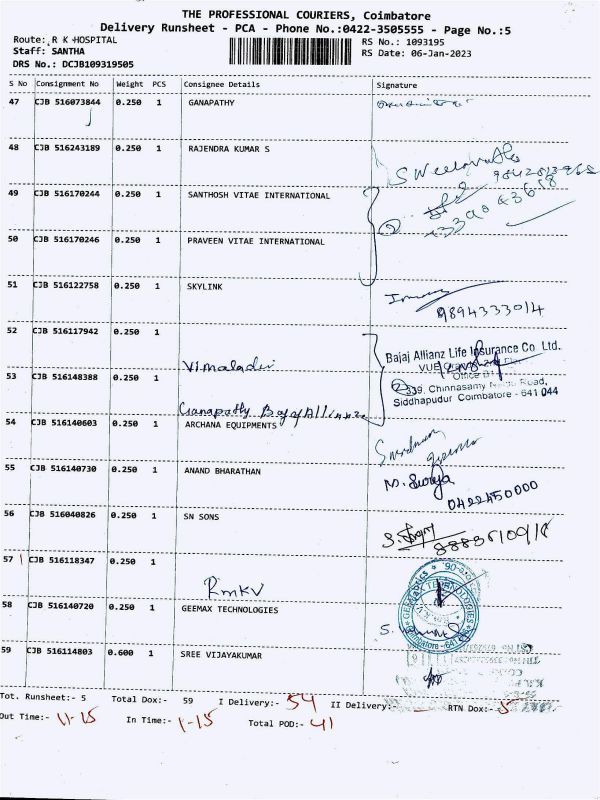 THE PROFESSIONAL COURIERS, Coimbatore
Delivery Runsheet - PCA - Phone No.:0422-3505555 - Page No.:5
Route: R K HOSPITAL
Staff: SANTHA
DRS No.: DCJB109319505
RS No.: 1093195
RS Date: 06-Jan-2023
S No Consignment No Weight PCS Consignee Details Signature
47 CJB 516073844 0.250 1 GANAPATHY
48 CJB 516243189 0.250 1 RAJENDRA KUMAR S
49 CJB 516170244 0.250 1 SANTHOSH VITAE INTERNATIONAL
50 CJB 516170246 0.250 1 PRAVEEN VITAE INTERNATIONAL
51 CJB 516122758 0.250 1 SKYLINK
9894333014
52 CJB 516117942 0.250 1
Vimaladevi
Bajaj Allianz Life Insurance Co. Ltd.
53 CJB 516148388 0.250 1
Ganapathy Bajaj Allianze
Siddhapudur Coimbatore - 641 044
54 CJB 516140603 0.250 1 ARCHANA EQUIPMENTS
55 CJB 516140730 0.250 1 ANAND BHARATHAN
M. Surya
0422450000
56 CJB 516040826 0.250 1 SN SONS
57 CJB 516118347 0.250 1
RMKV
58 CJB 516140720 0.250 1 GEEMAX TECHNOLOGIES
59 CJB 516114803 0.600 1 SREE VIJAYAKUMAR
Tot. Runsheet:- 5 Total Dox:- 59 I Delivery:- 54 II Delivery:- — RTN Dox:- 5
Out Time:- 11-15 In Time:- 1-15 Total POD:- 41